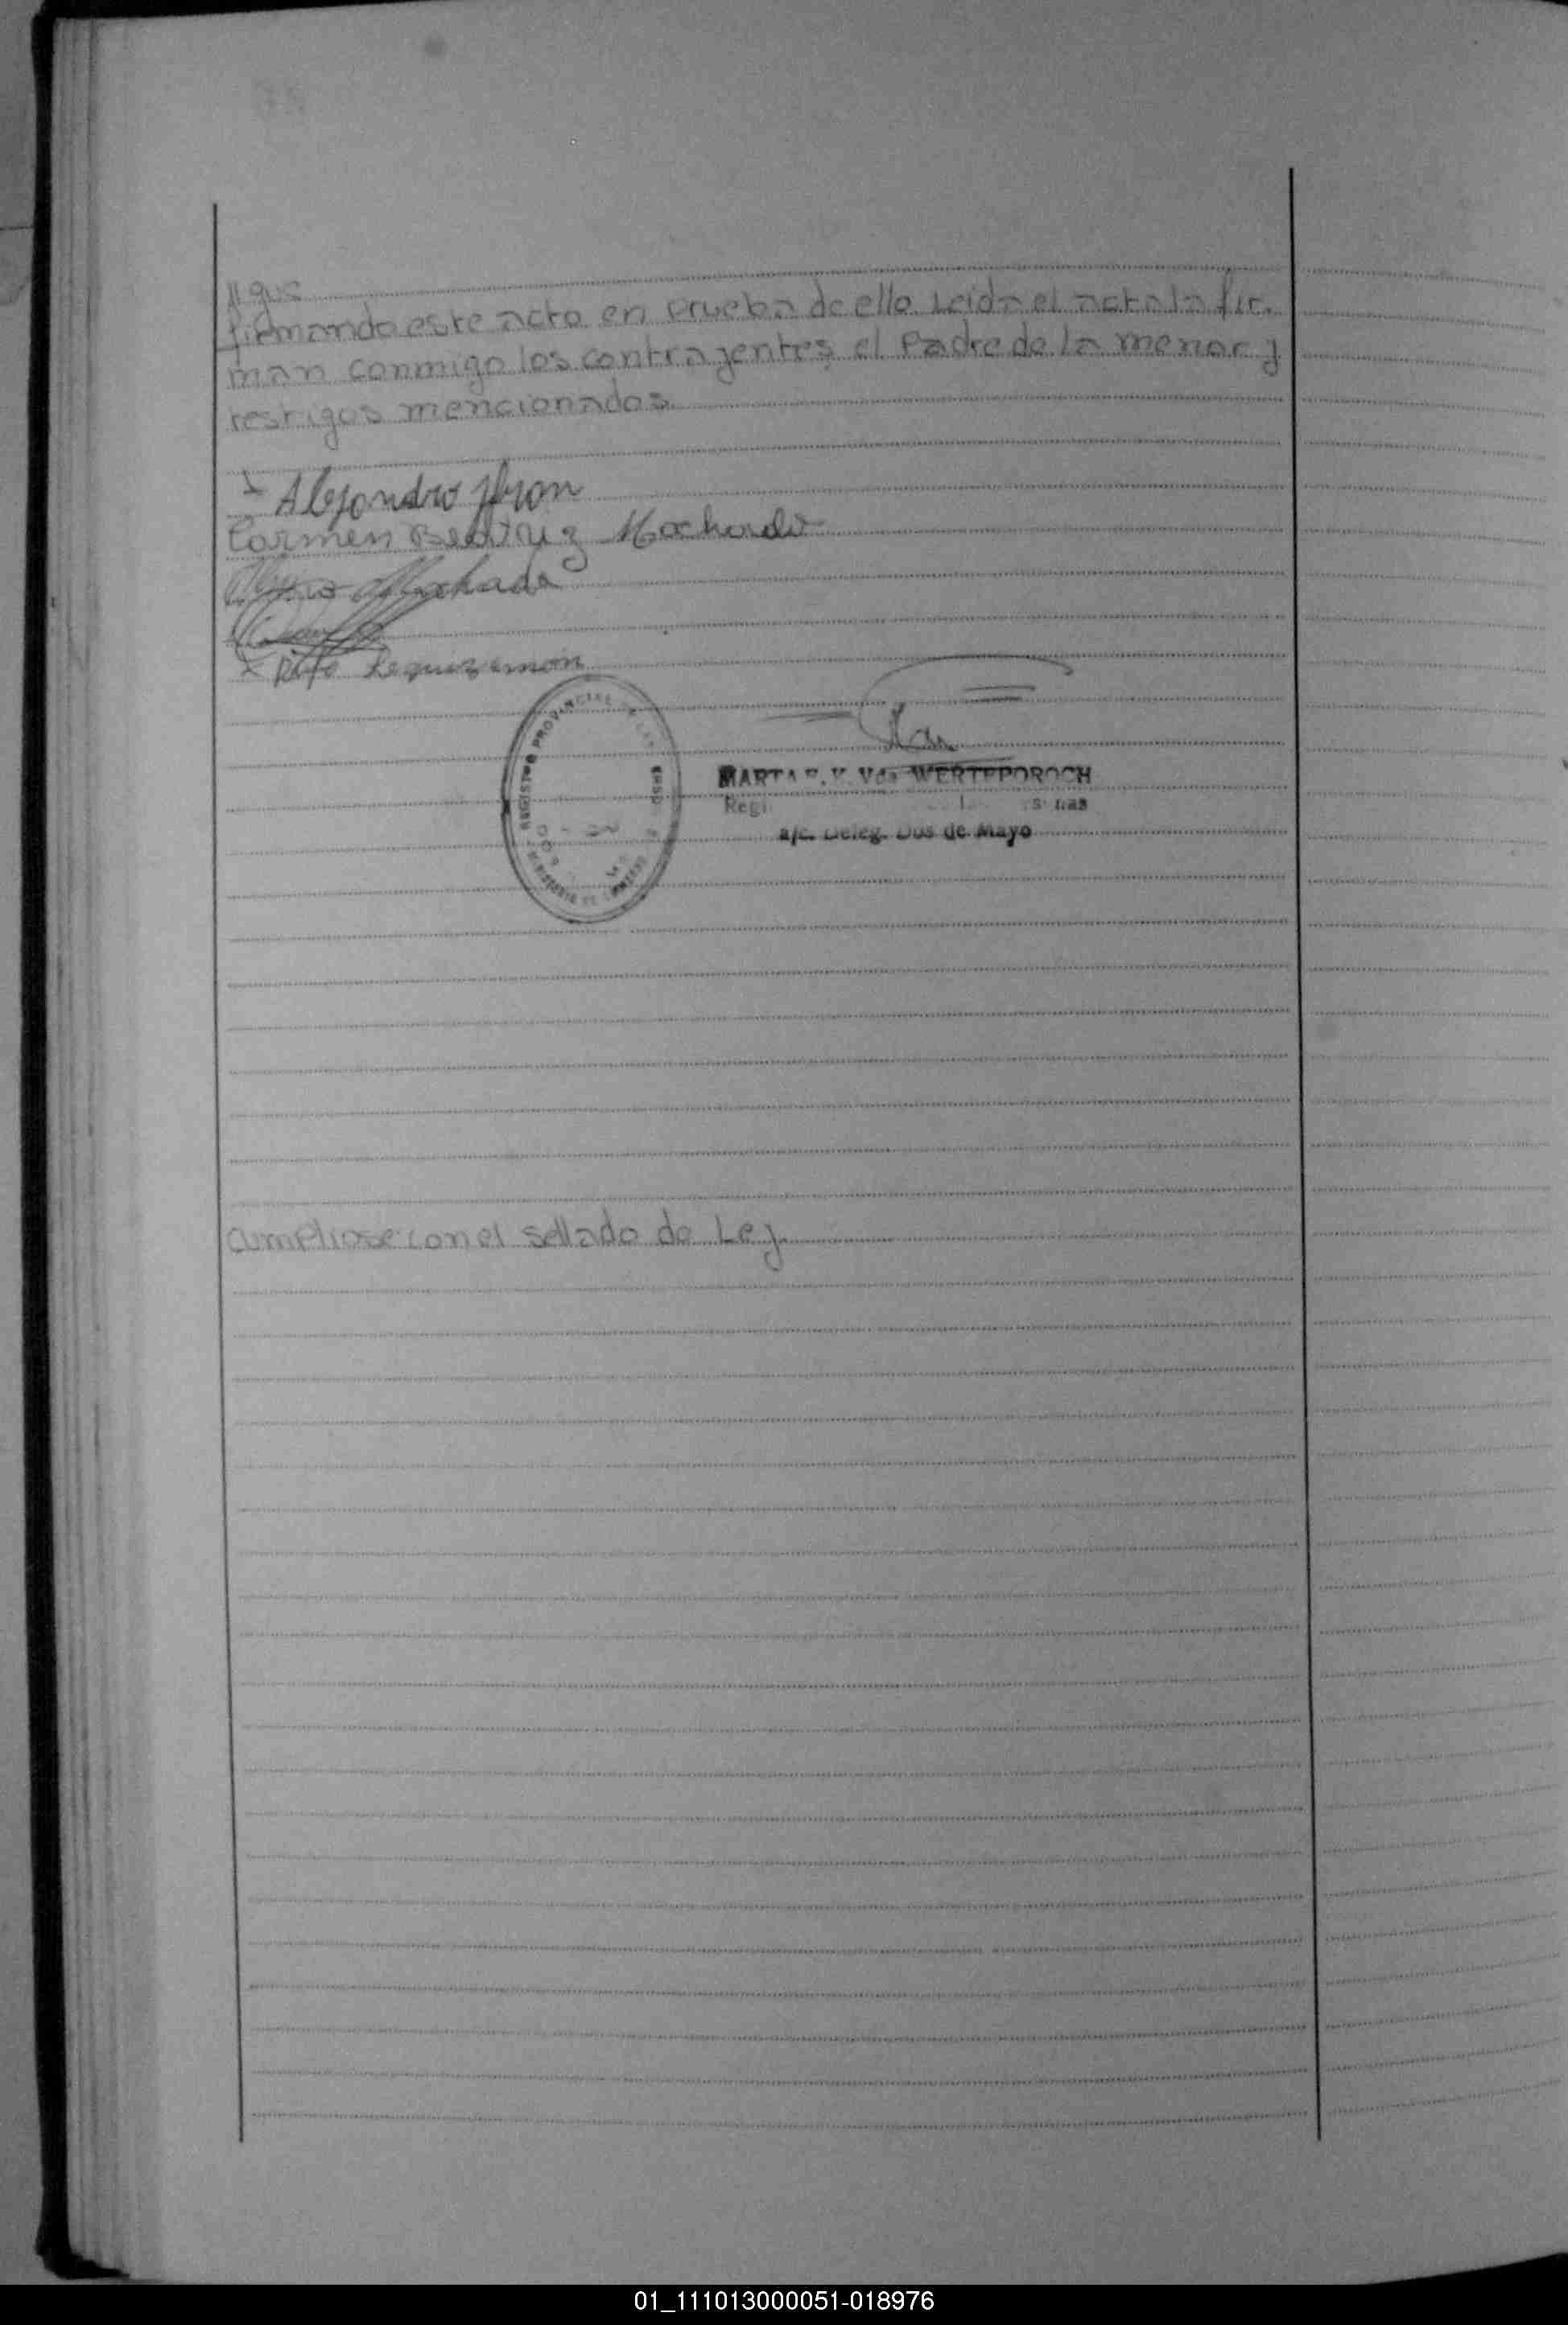 // que
firmando este acto en prueba de ello. Leida el acta la fir-
man conmigo los contrayentes, el Padre de la menor y
testigos mencionados.
Alejandro
Carmen Beatriz Machado
Machado
Leguizamon
REGISTRO PROVINCIAL
MARTA E. K. Vda WERTEPOROCH
Regi
a/c. Deleg. Dos de Mayo
Cumpliose con el sellado de Ley.
01_111013000051-018976